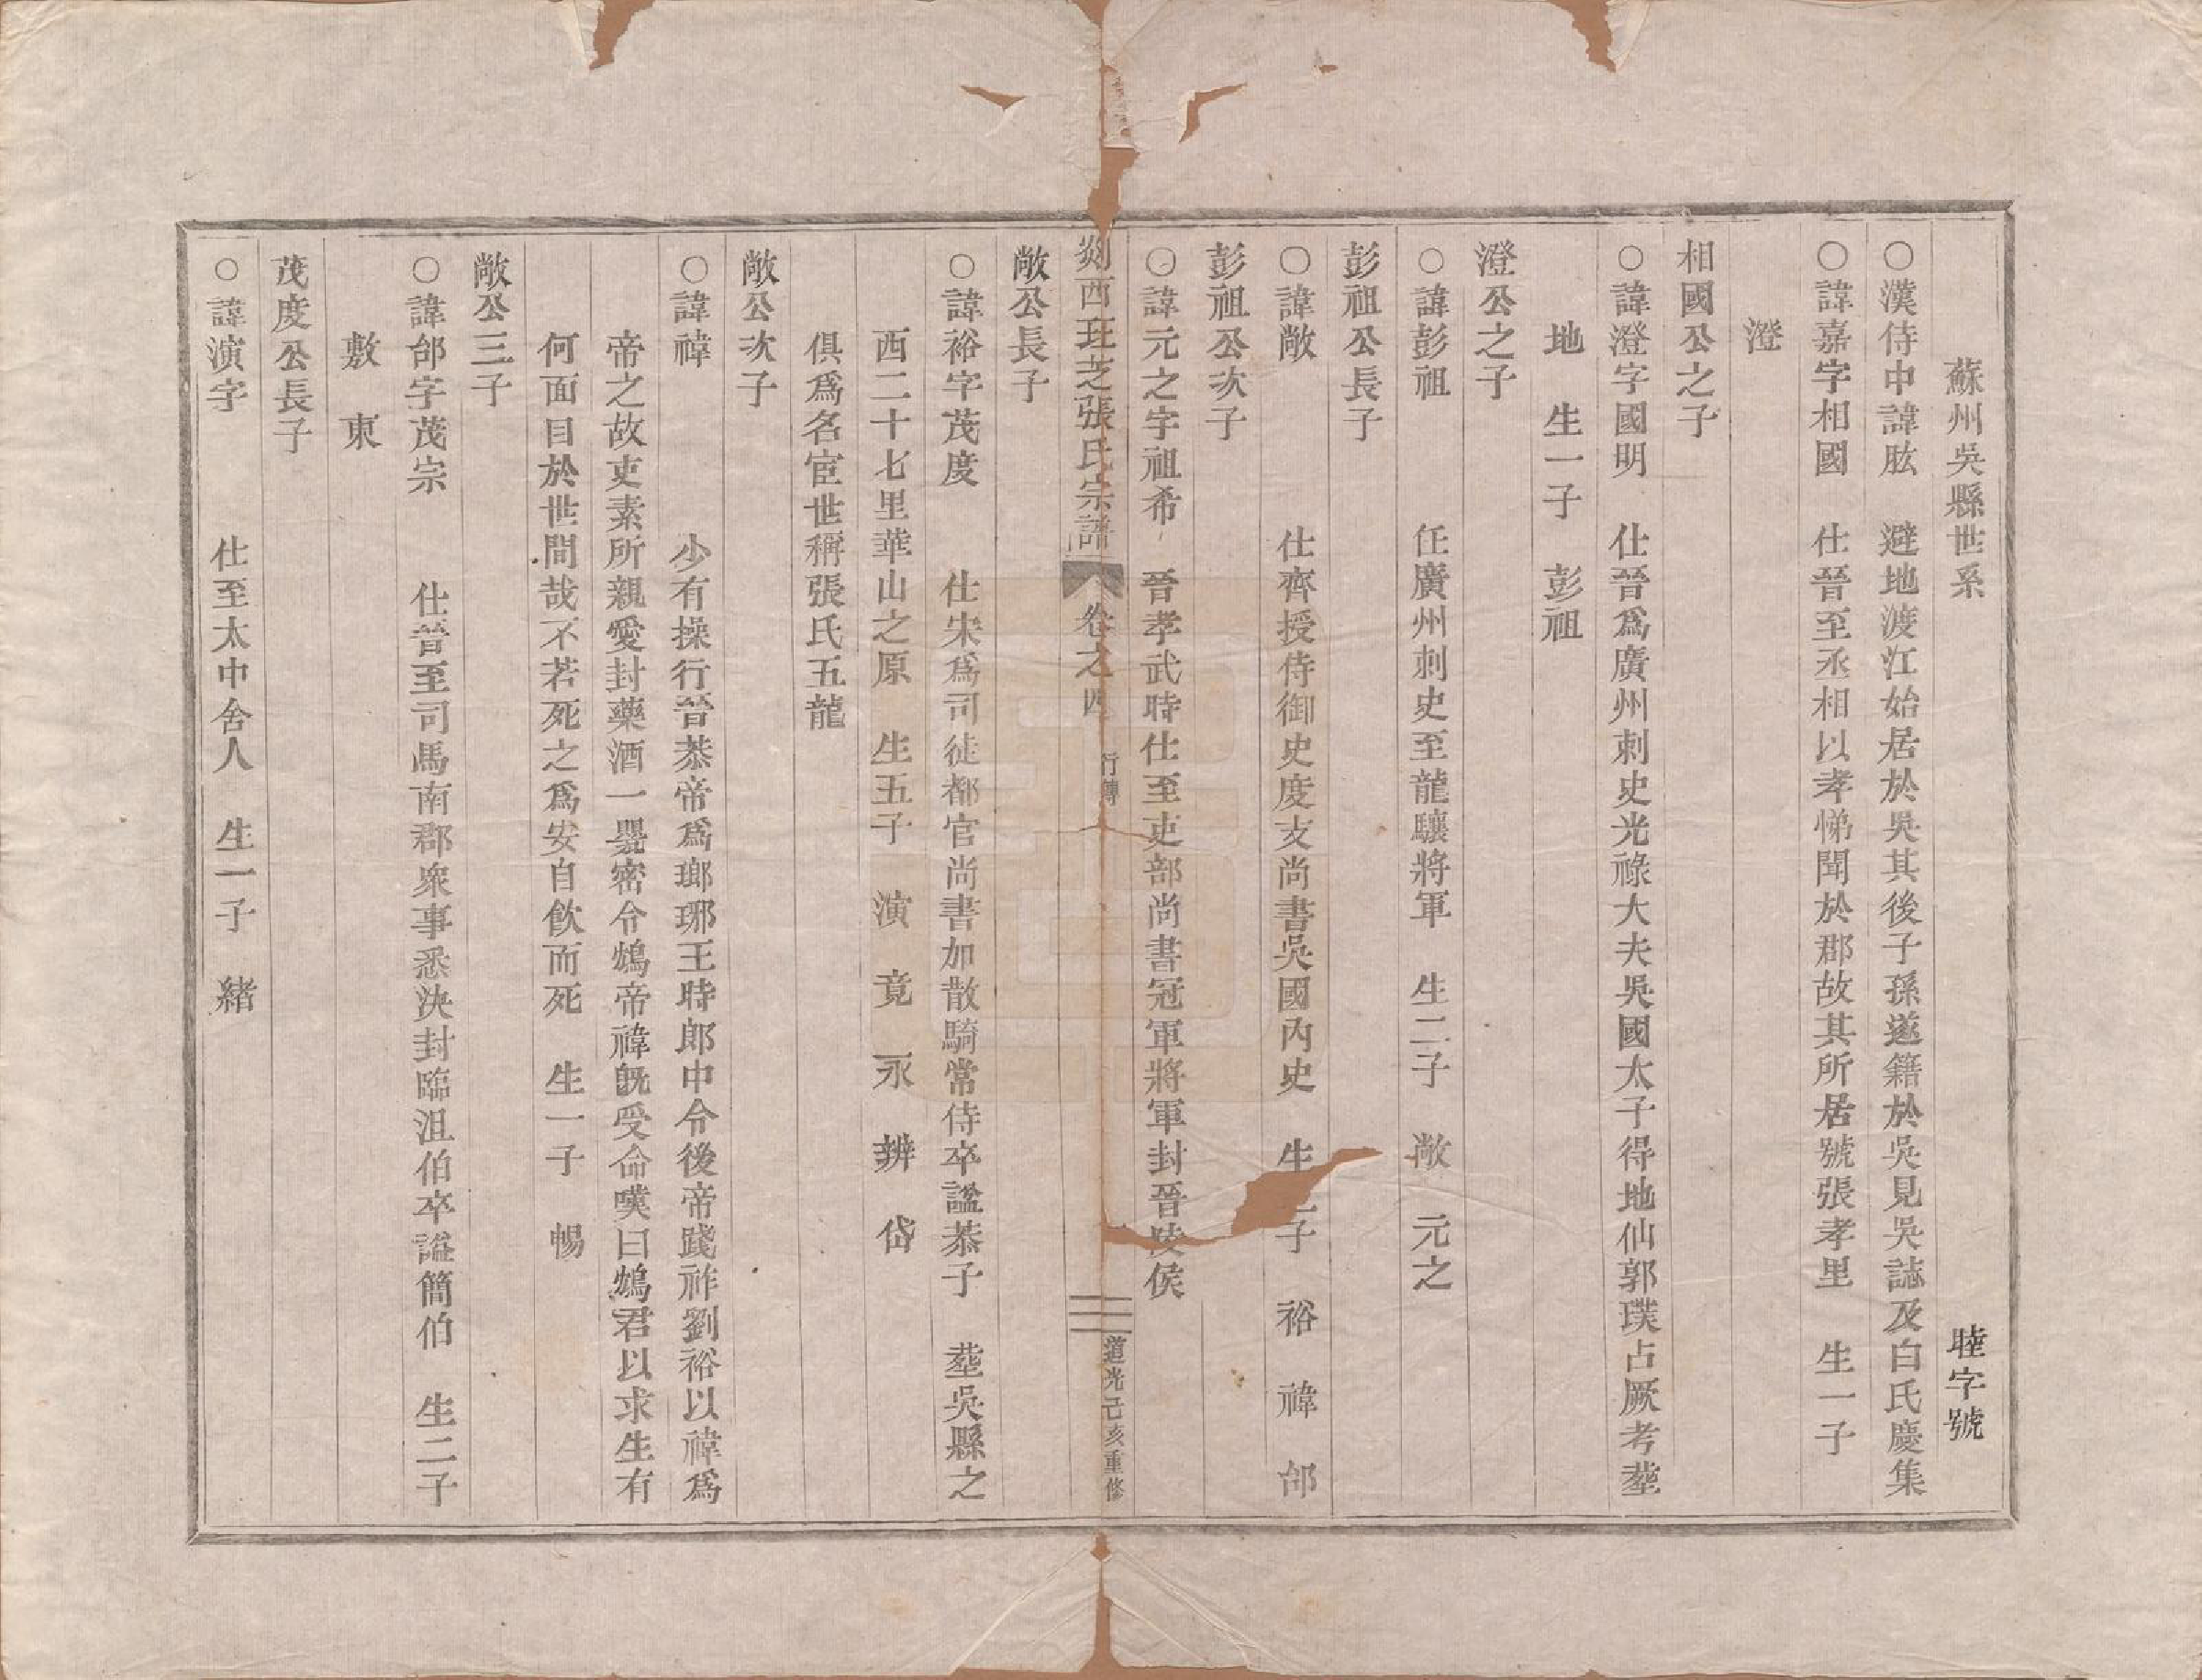 蘇州吳縣世系　睦字號
○漢侍中諱肱　避地渡江始居於吳其後子孫遂籍於吳見吳誌及白氏慶集
○諱嘉字相國　仕晉至丞相以孝悌聞於郡故其所居號張孝里　生一子
澄
相國公之子
○諱澄字國明　仕晉爲廣州刺史光祿大夫吳國太子得地仙郭璞占厥考塟
地　生一子　彭祖
澄公之子
○諱彭祖　任廣州刺史至龍驤將軍　生二子　敞　元之
彭祖公長子
○諱敞　仕齊授侍御史度支尚書吳國內史　生子　裕　禕　邰
彭祖公次子
○諱元之字祖希　晉孝武時仕至吏部尚書冠軍將軍封晉陵侯
剡西珏芝張氏宗譜　卷之四　行傳　道光己亥重修
敞公長子
○諱裕字茂度　仕宋爲司徒都官尚書加散騎常侍卒諡恭子　塟吳縣之
西二十七里華山之原　生五子　演　竟　永　辨　岱
俱爲名宦世稱張氏五龍
敞公次子
○諱禕　少有操行晉恭帝爲瑯琊王時郎中令後帝踐祚劉裕以禕爲
帝之故吏素所親愛封藥酒一甖密令鴆帝禕旣受命嘆曰鴆君以求生有
何面目於世間哉不若死之爲安自飲而死　生一子　暢
敞公三子
○諱邰字茂宗　仕晉至司馬南郡衆事悉決封臨沮伯卒謚簡伯　生二子
敷　東
茂度公長子
○諱演字　仕至太中舍人　生一子　緒